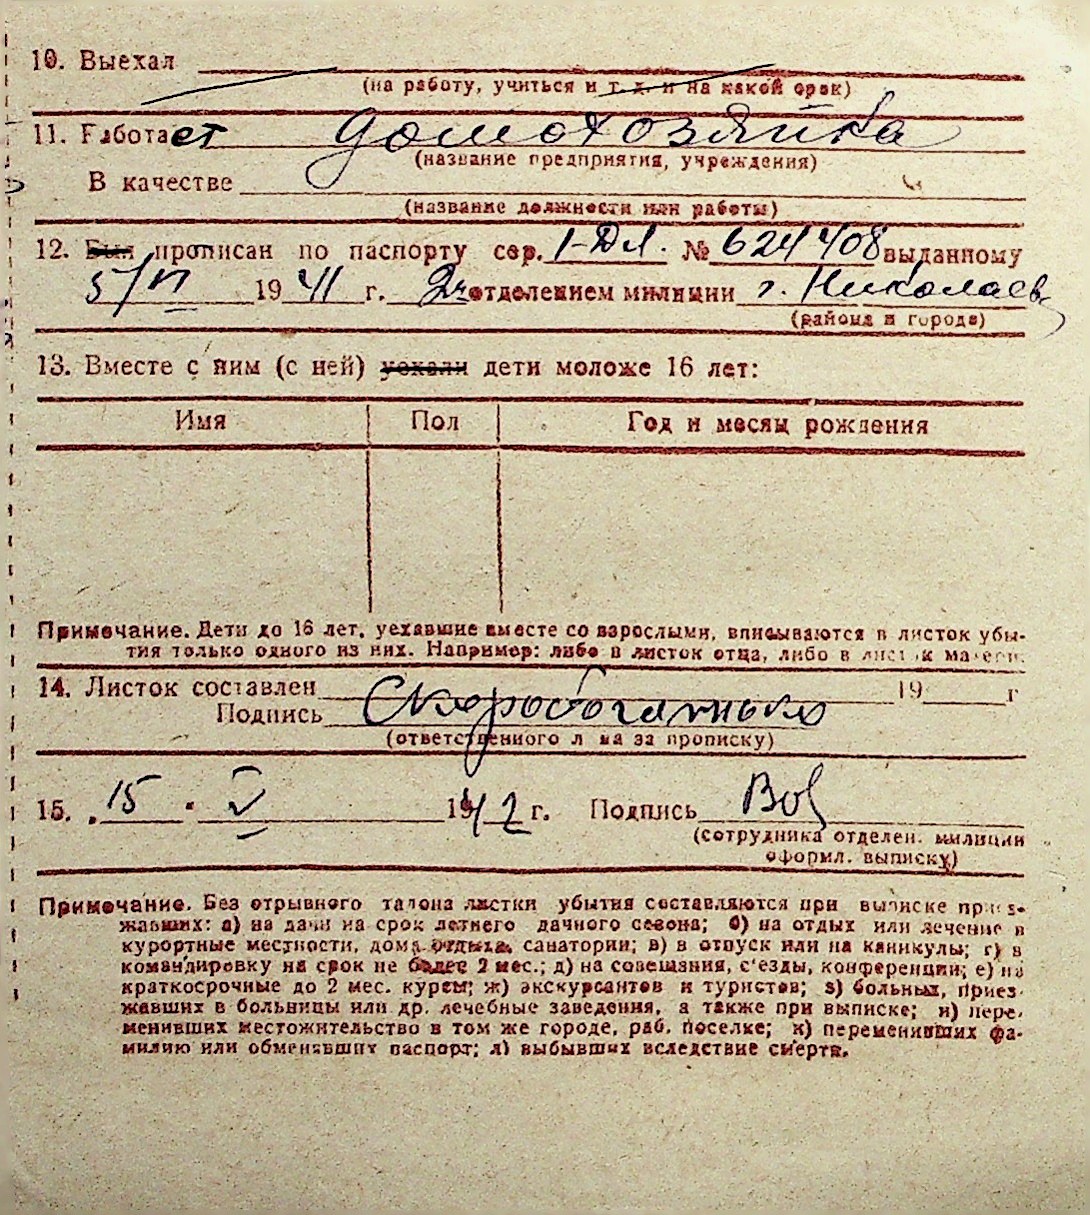 10. Выехал
(на работу, учиться и т. д. и на какой срок)
11. Работает домохозяйка
(название предприятия, учреждения)
В качестве
(название должности или работы)
12. Был прописан по паспорту сер. I-ДЛ. № 624408 выданному
5/VI 1941 г. 2м отделением милиции г. Николаев
(района и города)
13. Вместе с ним (с ней) уехали дети моложе 16 лет:
Имя Пол Год и месяц рождения
Примечание. Дети до 16 лет, уехавшие вместе со взрослыми, вписываются в листок убы-
тия только одного из них. Например: либо в листок отца, либо в листок матери.
14. Листок составлен 19 г
Подпись Скоробогатько
(ответственного лица за прописку)
15. 15 V 1942 г. Подпись
(сотрудника отделен. милиции
оформл. выписку)
Примечание. Без отрывного талона листки убытия составляются при выписке приез-
жавших: а) на дачи на срок летнего дачного сезона; б) на отдых или лечение в
курортные местности, дома отдыха, санатории; в) в отпуск или на каникулы; г) в
командировку на срок не более 2 мес.; д) на совещания, с'езды, конференции; е) на
краткосрочные до 2 мес. курсы; ж) экскурсантов и туристов; з) больных, приез-
жавших в больницы или др. лечебные заведения, а также при выписке; и) пере-
менивших местожительство в том же городе, раб. поселке; к) переменивших фа-
милию или обменявших паспорт; л) выбывших вследствие смерти.